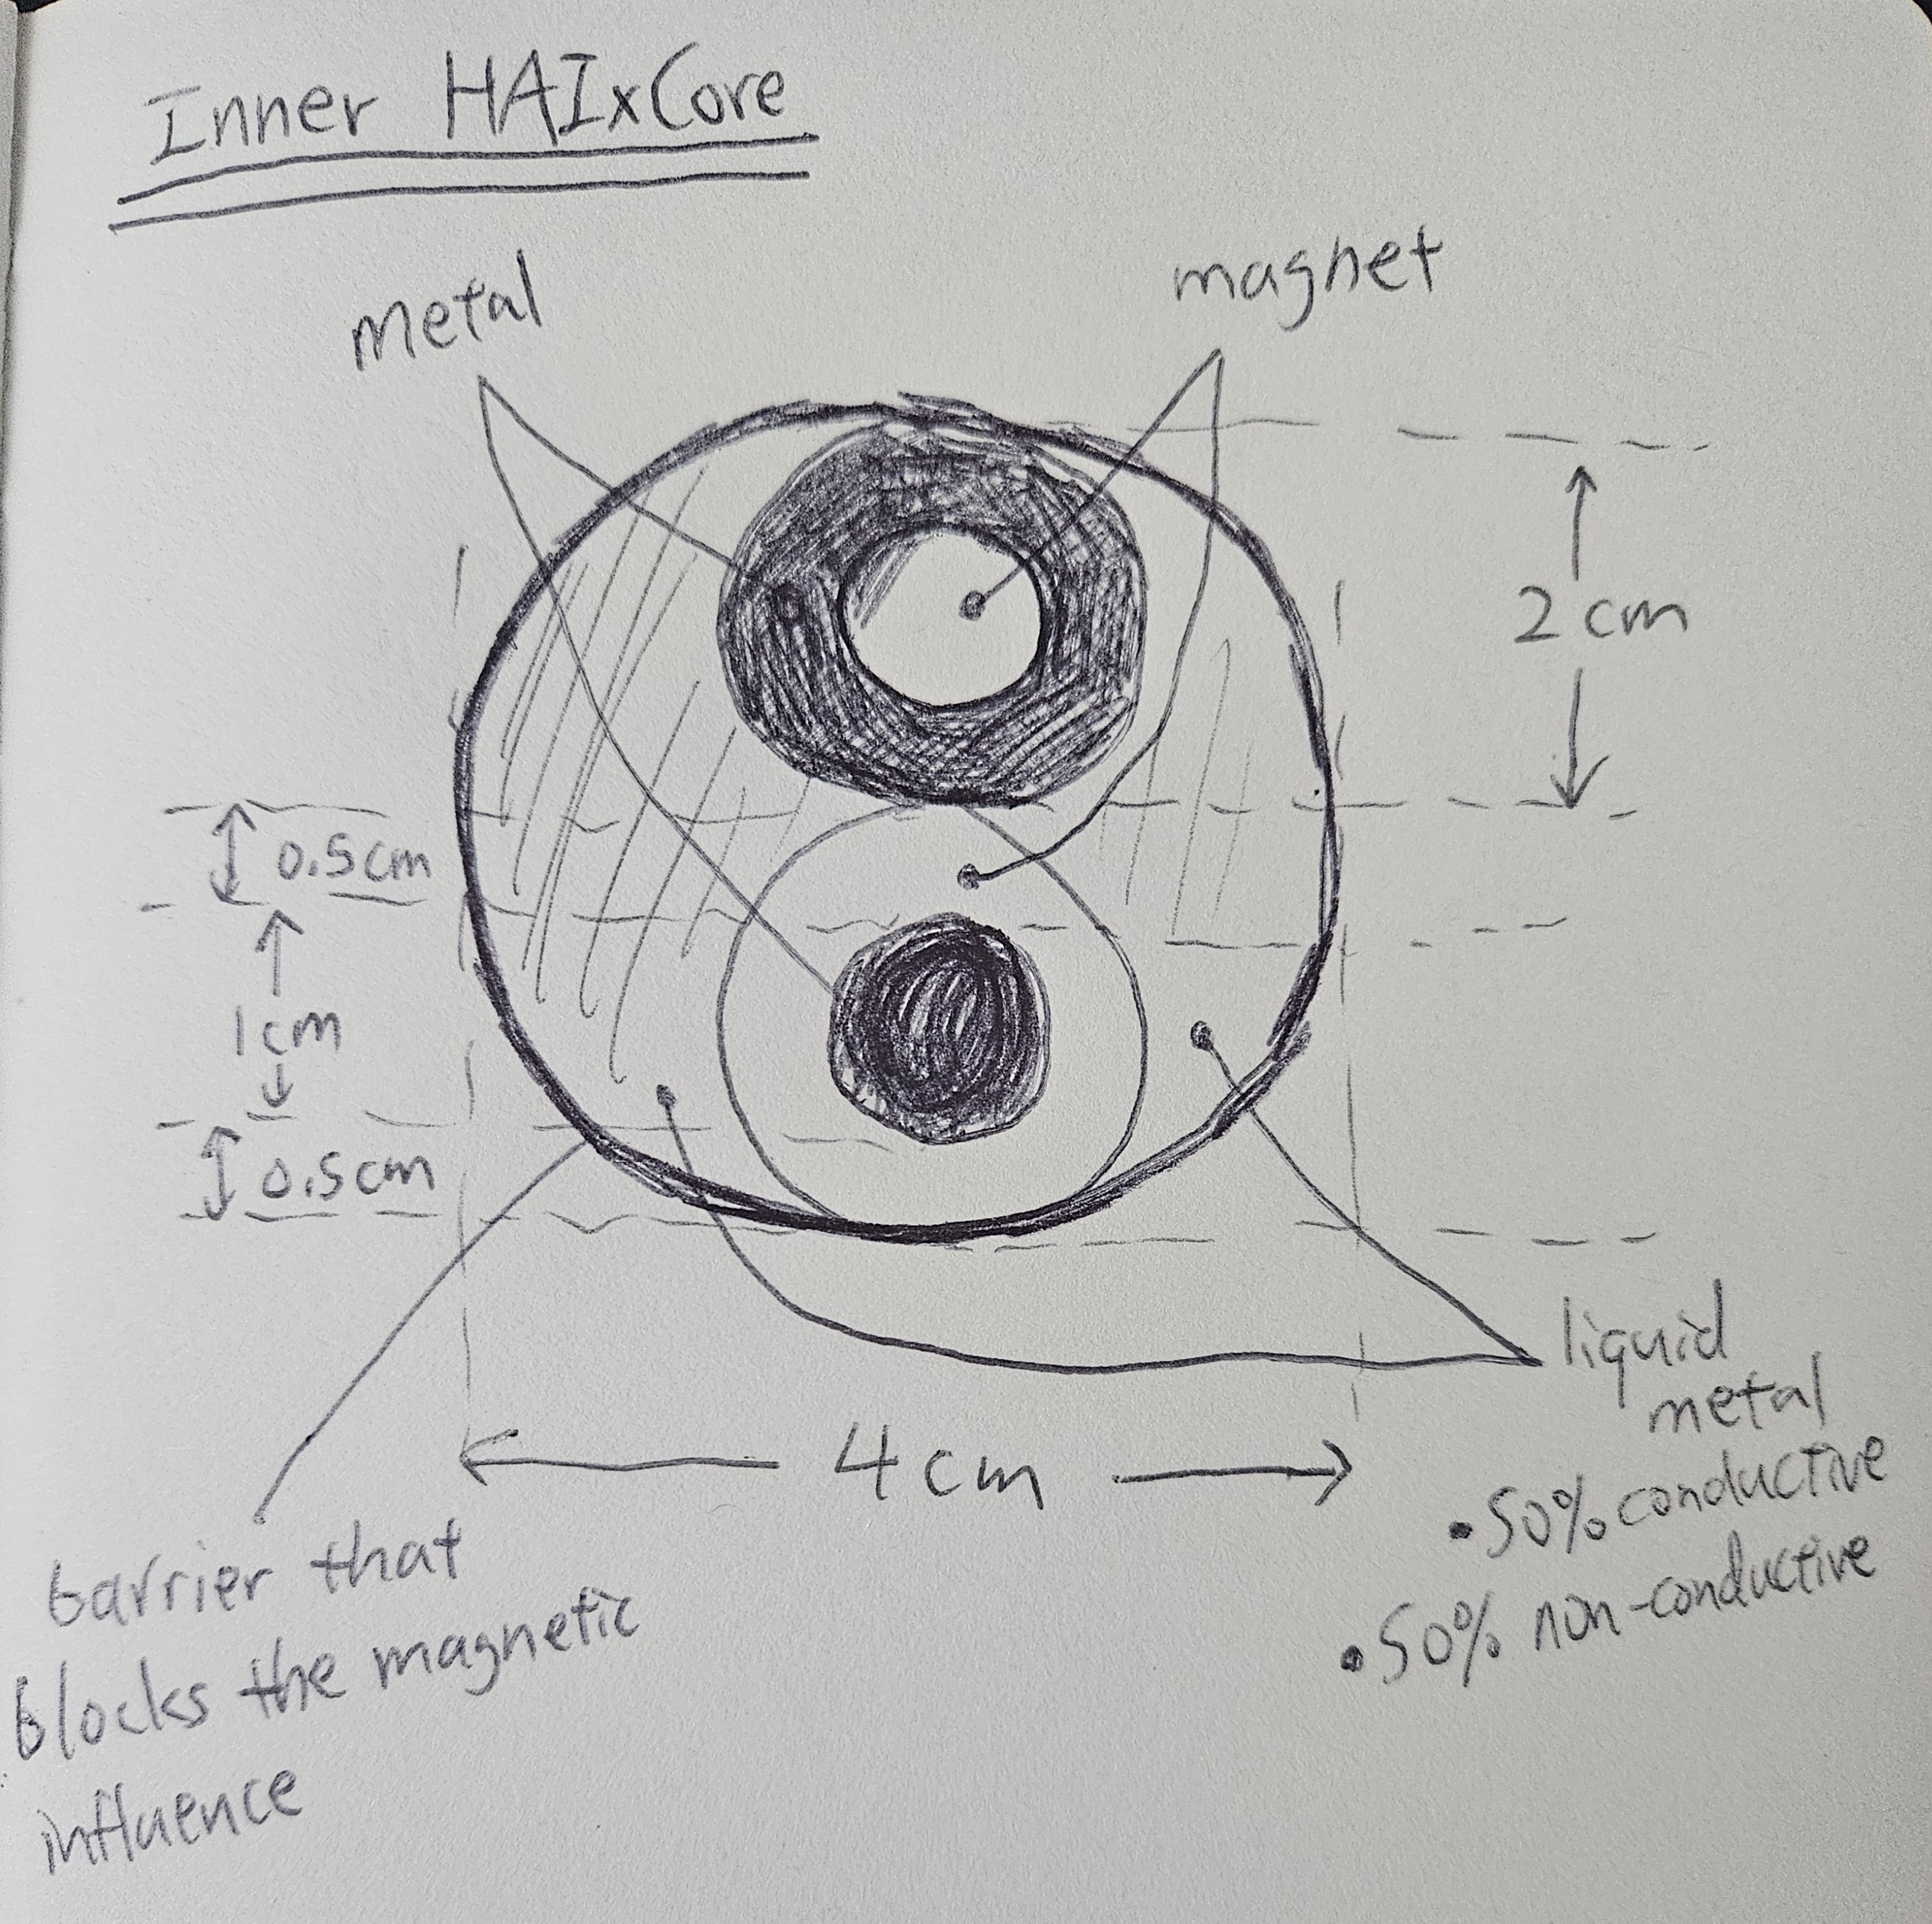 Inner HAIxCore
metal
magnet
2 cm
0.5cm
1cm
0.5cm
4cm
liquid
metal
•50% conductive
•50% non-conductive
barrier that
blocks the magnetic
influence